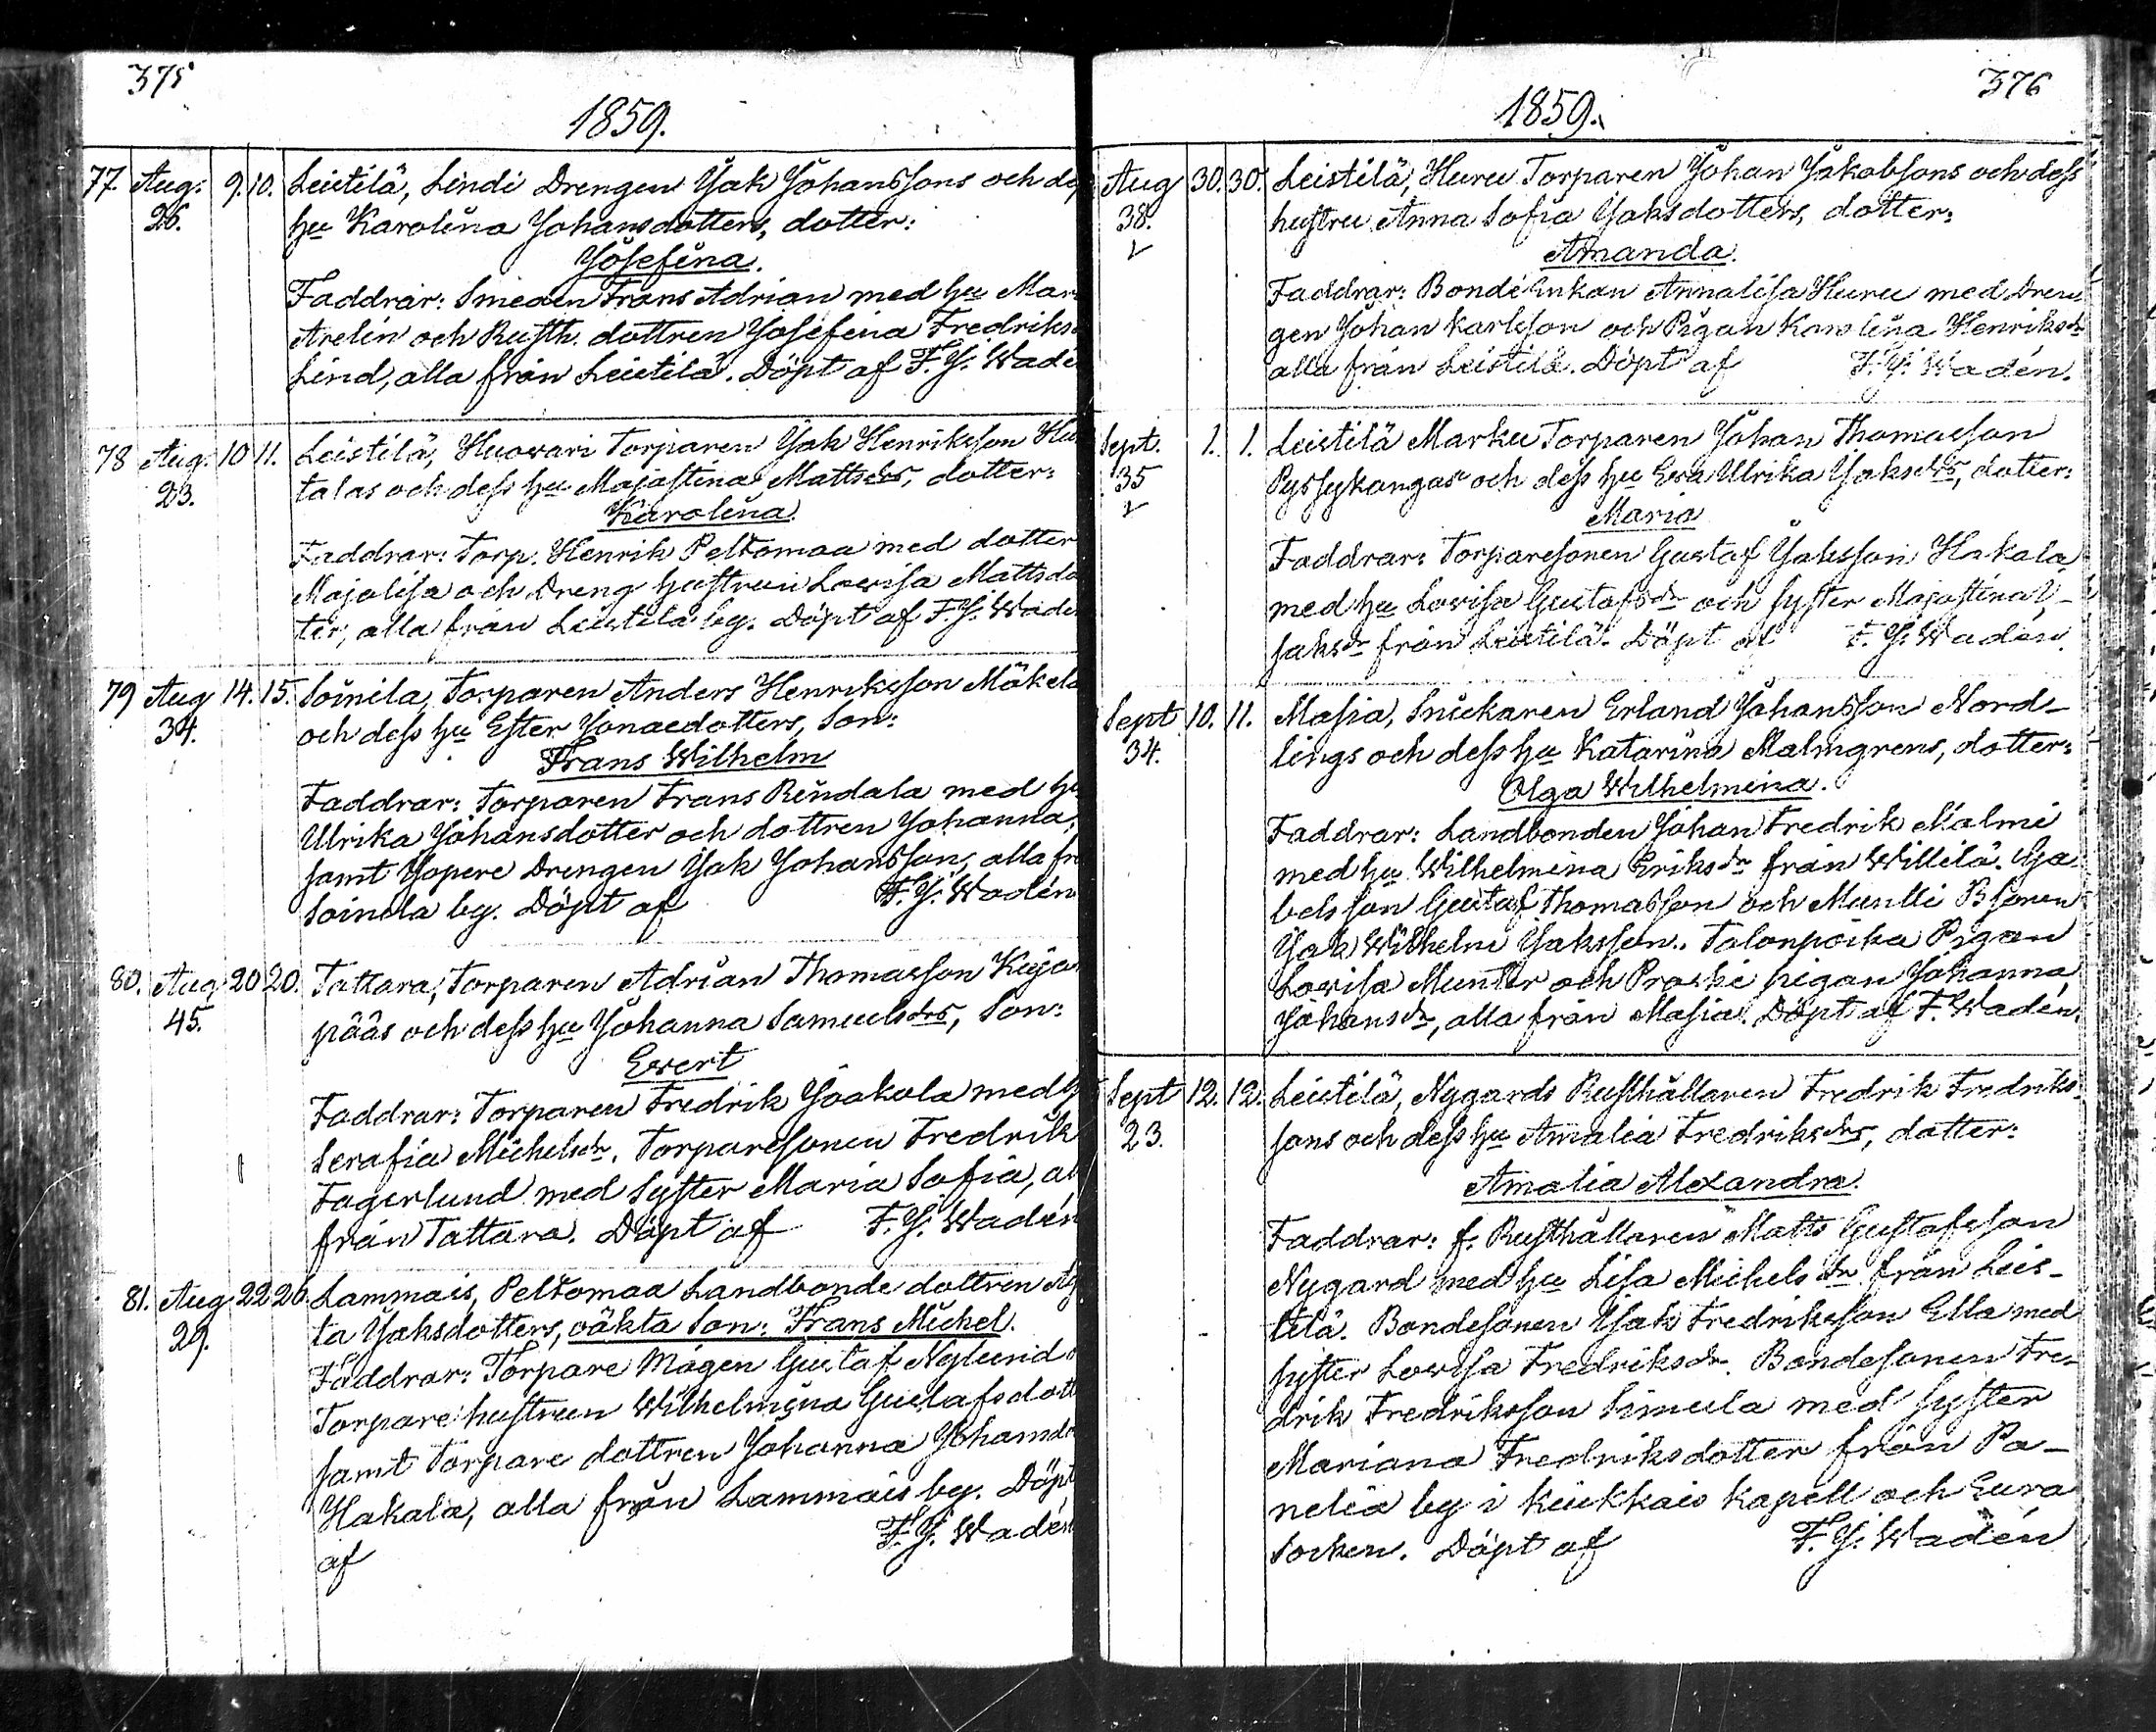 375
1859.
77. Aug: 9. 10. Leistilä, Lindi Drengen Jak Johanssons och de
26. hu Karolina Johansdotters, dotter:
Josefina.
Faddrar: Smeden Frans Adrian med hu Mar
Arelin och Rusth. dottren Josefina Fredriks
Lind, alla från Leistilä. Döpt af F. J. Wadé
78 Aug. 10 11. Leistilä, Huovari Torparen Jak Henriksson Hu
23. talas och dess hu Majastina Mattsdrs, dotter:
Karolina
Faddrar: Torp. Henrik Peltomaa med dotter
Majalisa och Dreng hustrun Lovisa Mattsdo
ter, alla från Leistilä by. Döpt af F. J. Wadé
79 Aug 14. 15. Soinila, Torparen Anders Henriksson Mäkelä
34. och dess hu Ester Jonaedotters, Son:
Frans Wilhelm
Faddrar: Torparen Frans Rindala med hu
Ulrika Johansdotter och dottren Johanna,
samt Jopere Drengen Jak Johansson, alla fr
Soinila by. Döpt af F. J. Wadén
80. Aug 20 20. Tattara, Torparen Adrian Thomasson Kuja
45. pääs och dess hu Johanna Samuelsdrs, Son:
Evert
Faddrar: Torparen Fredrik Jaakola med h
Serafia Michelsdr. Torparesonen Fredrik
Fagerlund med Syster Maria Sofia, al
från Tattara. Döpt af F. J. Wadén
81. Aug 22 26. Lammais, Peltomaa Landbonde dottren Ag
29. ta Jaksdotters, oäkta Son: Frans Michel.
Faddrar: Torpare Mågen Gustaf Nylund
Torpare hustrun Wilhelmina Gustafsdott
samt Torpare dottren Johanna Johansd
Hakala, alla från Lammais by. Döpt
af F. J. Wadén
376
1859.
Aug 30. 30. Leistilä, Huru Torparen Johan Jakobsons och dess
38. hustru Anna Sofia Jaksdotters, dotter:
Amanda.
Faddrar: Bonde Enkan Annalisa Huru med Dren
gen Johan Karlsson och Pigan Karolina Henriksdr
alla från Leistilä. Döpt af F. J. Wadén.
Sept. 1. 1. Leistilä Marku Torparen Johan Thomasson
35 Pyssykangas och dess hu Eva Ulrika Jaksdrs, dotter:
Maria
Faddrar: Torparesonen Gustaf Jaksson Hakala
med hu Lovisa Gustafsdr och syster Majastina
Jaksdr från Leistilä. Döpt af F. J. Wadén.
Sept 10. 11. Masia, Snickaren Erland Johansson Nord-
34. lings och dess hu Katarina Malmgrens, dotter:
Olga Wilhelmina.
Faddrar: Landbonden Johan Fredrik Malmi
med hu Wilhelmina Eriksdr från Willilä. Ga
bels son Gustaf Thomasson och Muntti Bsonen
Jak Wilhelm Jaksson. Talonpoika Pigan
Lovisa Munter och Proski pigan Johanna
Johansdr, alla från Masia. Döpt af F. Wadén.
Sept 12. 12. Leistilä, Nygards Rusthållaren Fredrik Fredriks-
23. sons och dess hu Amalia Fredriksdrs, dotter:
Amalia Alexandra.
Faddrar: f. Rusthållaren Matts Gustafsson
Nygard med hu Lisa Michelsdr från Leis-
tilä. Bondesonen Isak Fredriksson Ella med
syster Lovisa Fredriksdr. Bondesonen Fre-
drik Fredriksson Simula med syster
Mariana Fredriksdotter från Pa-
nelia by i Kiukkais kapell och Eura
Socken. Döpt af F. J. Wadén